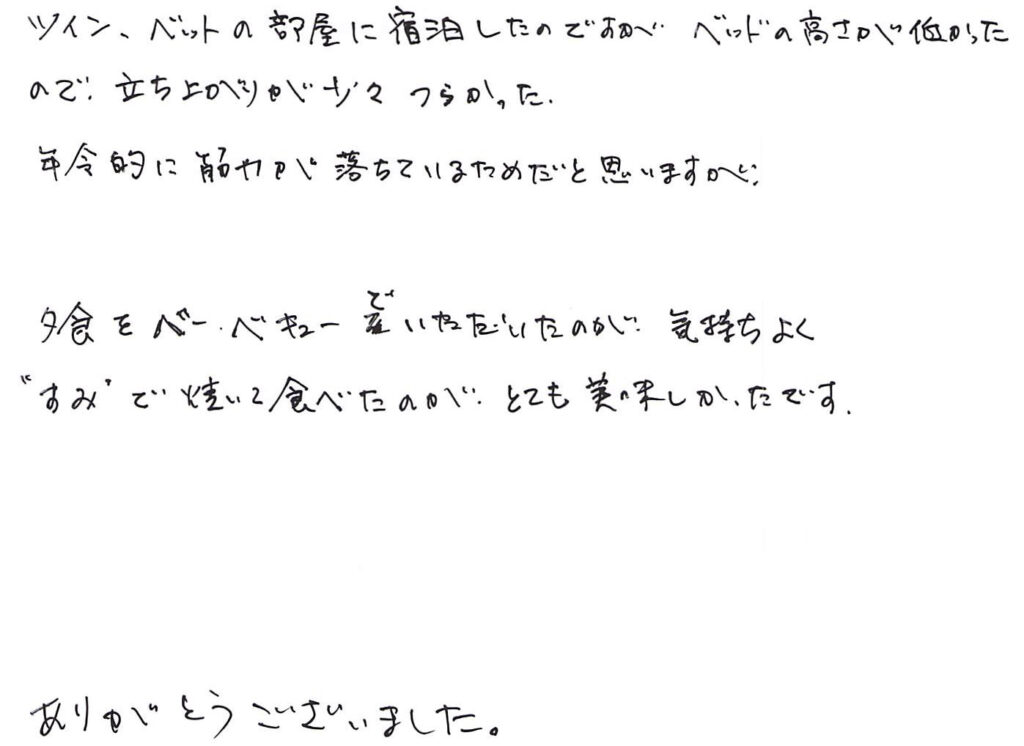 ツイン、ベットの部屋に宿泊したのですがベッドの高さが低かった
ので、立ち上がりが少々つらかった.
年令的に筋力が落ちているためだと思いますが、
夕食をバーベキューでいただいたのが、気持ちよく
"すみ"で焼いて食べたのが、とても美味しかったです.
ありがとうございました。